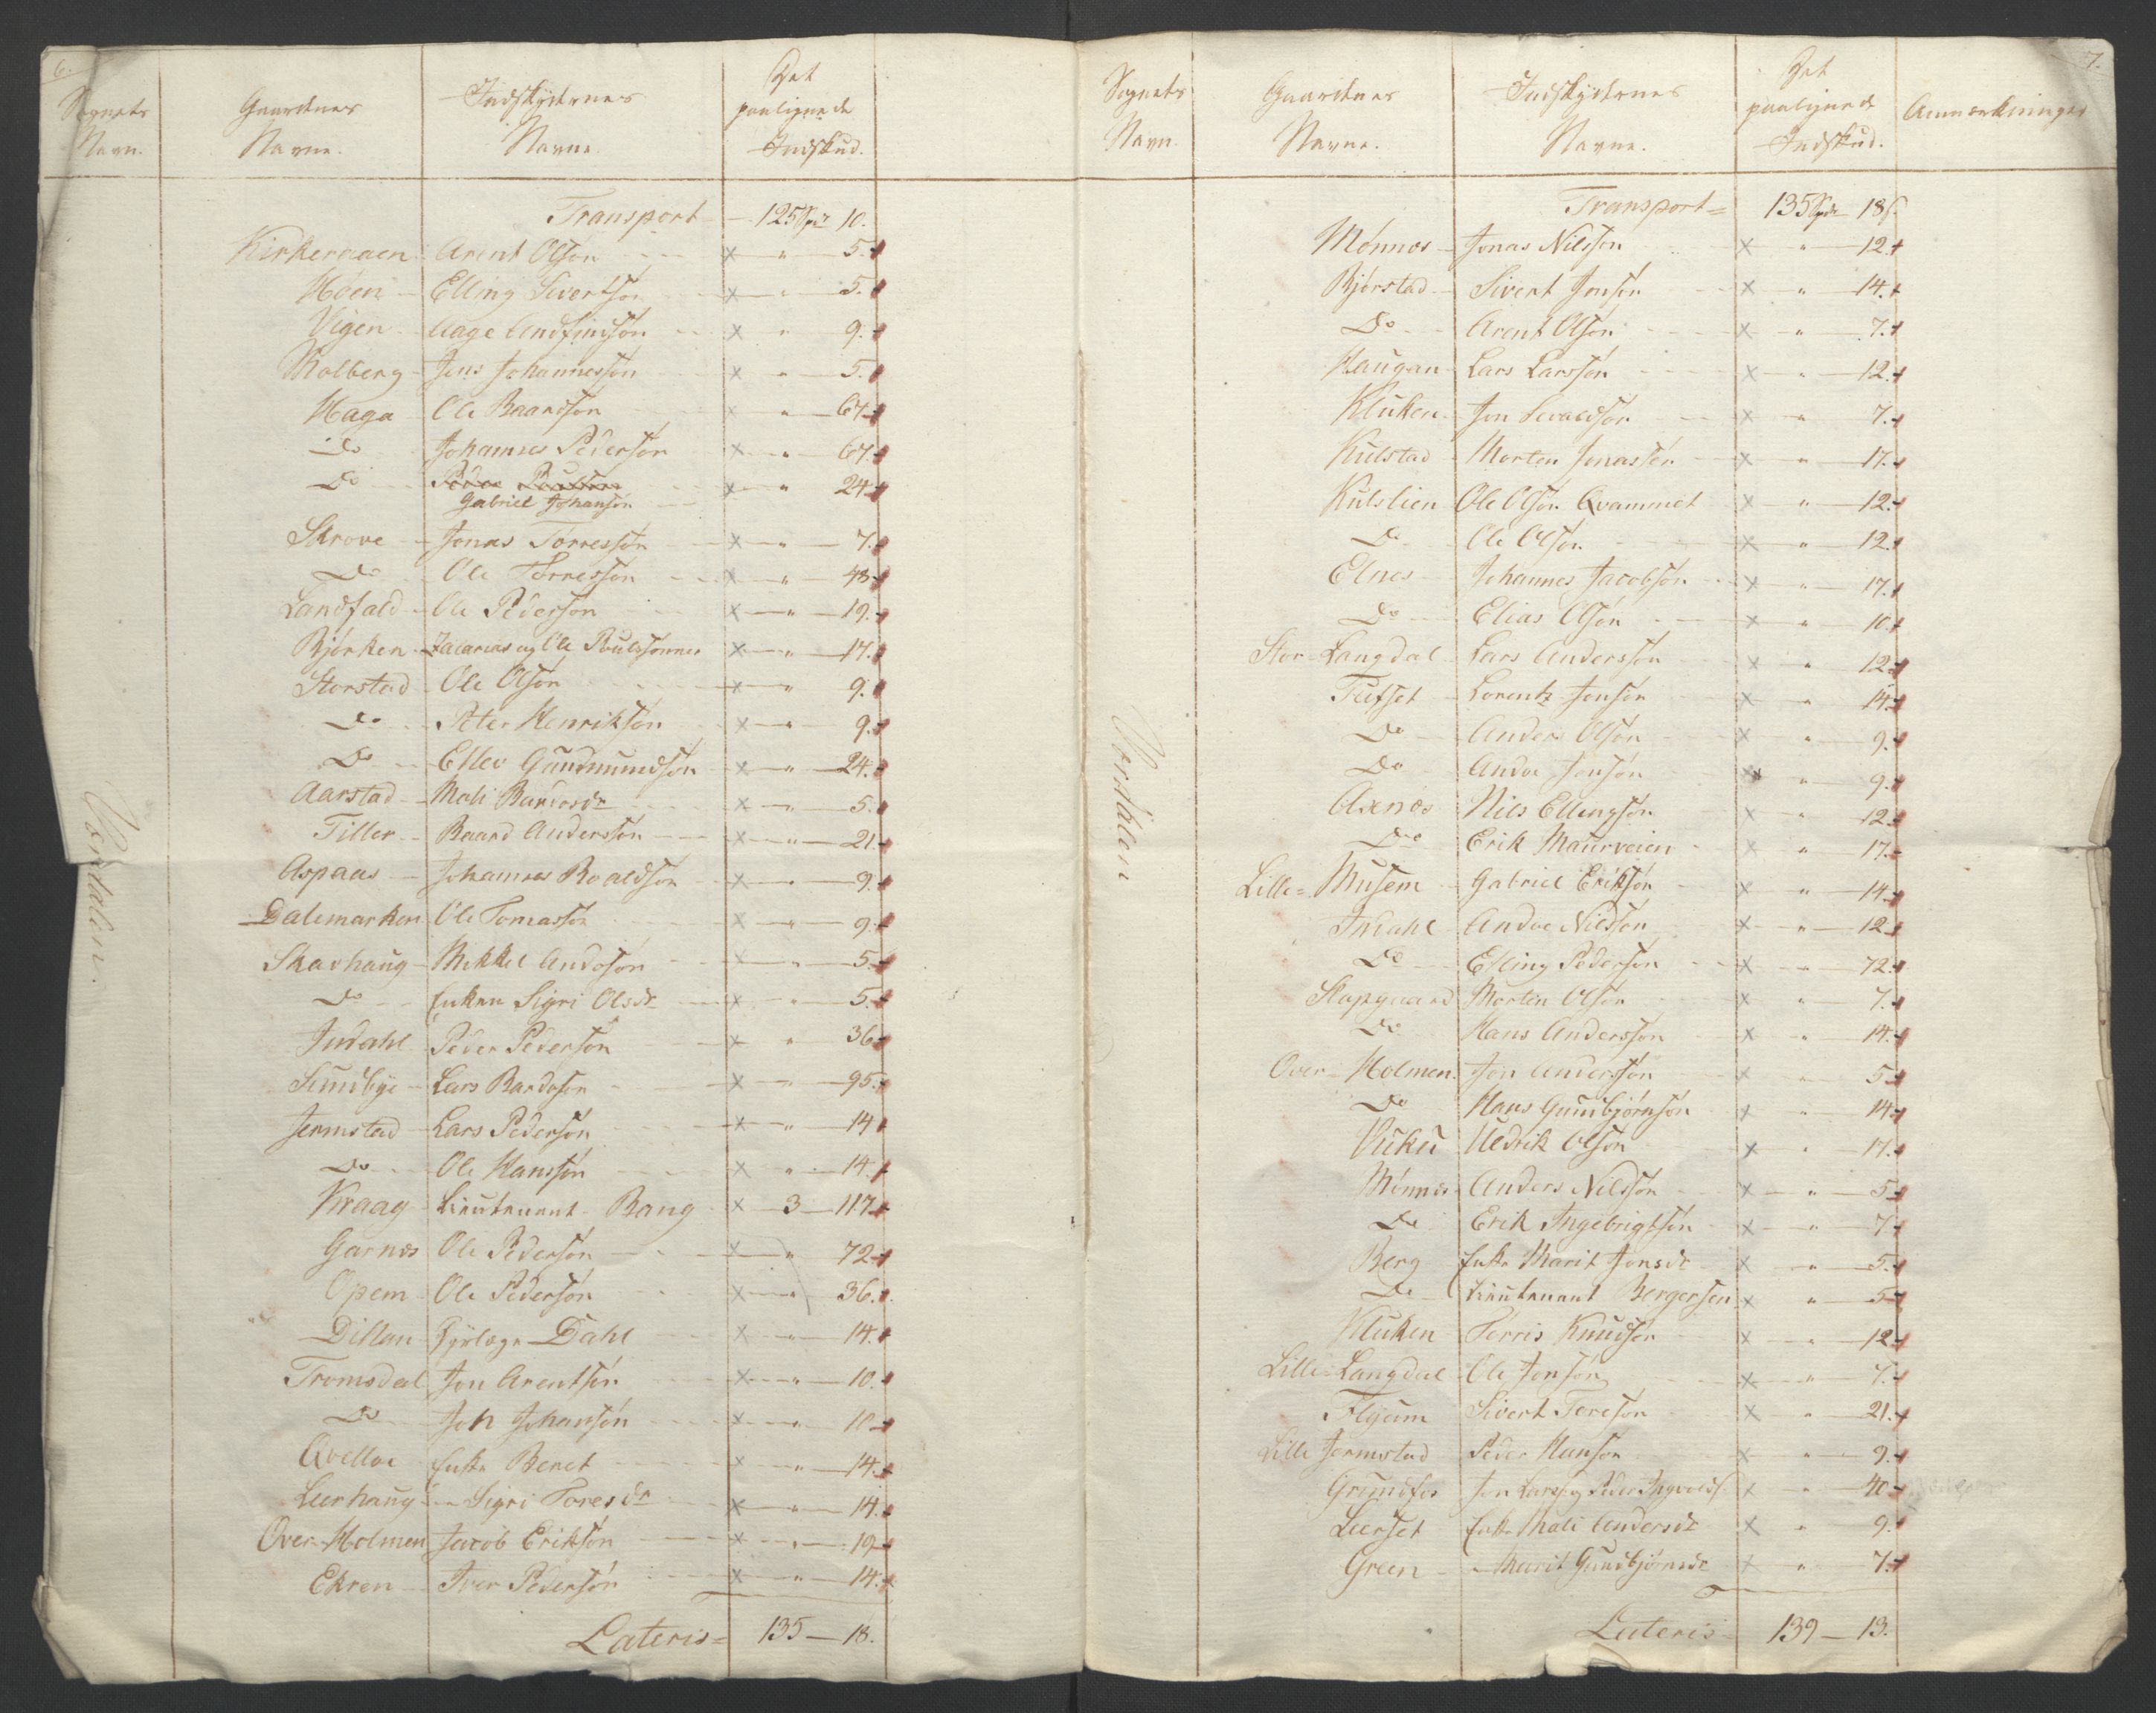 6.
Sognets Navn. Gaardenes Navne. Indskydernes Navne Det paalignede Indskud.
Transport 125 Spd 10.
Kirkeraaen Arent Olsøn x " 5.
Høen Elling Sivertsøn x " 5.
Vigen Aage Andfindsøn x " 9.
Molberg Jens Johannessøn x " 5.
Haga Ole Baardsøn x " 67
Do Johannes Pedersøn x " 67.
Do Gabriel Johansøn x " 24
Skrove Jonas Tørressøn x " 7.
Do Ole Tørressøn x " 48
Landfald Ole Pedersøn x " 19.
Bjørken Zacarias og Ole Poulssønner x " 17.
Storstad Ole Olsøn x " 9.
Do Peter Henriksøn x " 9.
Do Ellev Gundmundsøn x " 24.
Aarstad Mali Bardosdr x " 5.
Tiller Baard Anderssøn x " 21.
Aspaas Johannes Roaldsøn x " 9.
Dalemarken Ole Tomassøn x " 9
Skavhaug Mikkel Andosøn x " 5.
Do Enken Sigri Olsdr x " 5.
Indahl Peder Pedersøn x " 36
Sundbye Lars Bardosøn x " 95.
Jermstad Lars Pedersøn x " 14
Do Ole Hanssøn x " 14.
Kraag Lieutenant Bang x 3 117
Garnæs Ole Pedersøn x " 72
Opem Ole Pedersøn x " 36.
Dillan Dahl x " 14.
Tromsdal Jon Arentsøn x " 10.
Do Joh Johansøn x " 10
Qvelloe Enke Beret x " 14.
Leerhaug " Sigri Toresdr x " 14.
Over-Holmen Jacob Eriksøn x " 19
Ekren Iver Pedersøn x " 14.
Lateris = 135 — 18.
Værdalen.
7.
Sognets Navn. Gaardenes Navne. Indskydernes Navne. Det paalignede Indskud. Anmærkninger
Transport = 135 Spd 18 s.
Mønnæs Jonas Nilssøn x " 12
Bjørstad Sivert Jonsøn x " 14.
Do Arent Olsøn x " 7.
Haugan Lars Larssøn x " 12.
Kluken Jon Sivaldsøn x " 7.
Kulstad Morten Jonassøn x " 17.
Kulslien Ole Olsøn Qvammet x " 12.
Do Ole Olsøn x " 12.
Elnes Johannes Jacobsøn x " 17.
Do Elias Olsøn x " 10.
Stor-Langdal Lars Anderssøn x " 12.
Tufset Lorentz Jonsøn x " 14.
Do Anders Olsøn x " 9.
Do Andoe Jonsøn x " 9.
Axnes Nils Ellingsøn x " 12.
Do Erik Maurveien x " 17.
Lille-Musem Gabriel Eriksøn x " 14.
Indahl Andoe Nilssøn x " 12.
Do Elling Pedersøn x " 72.
Slapgaard Morten Olsøn x " 7.
Do Hans Anderssøn x " 14.
Over-Holmen Jon Anderssøn x " 5.
Do Hans Gunbjørnsøn x " 14.
Vuku Uldrik Olsøn x " 17.
Mønnæs Anders Nilssøn x " 5
Do Erik Ingebrigtsøn x " 7.
Berg Enke Marit Jonsdr x " 5.
Do Lieutenant Bergersen x " 5
Kluken Tørris Knudsøn x " 12
Lille Langdal Ole Jonsøn x " 7.
Flyum Sivert Toresøn x " 21.
Lille Jermstad Peder Hansøn x " 9.
Grundfos Jon Lars. og Peder Ingvalds. x " 40
Leerset Enke Mali Andersdr x " 9.
Green " Marit Gundbjørnsdr x " 7.
Lateris 139 — 13.
Værdalen